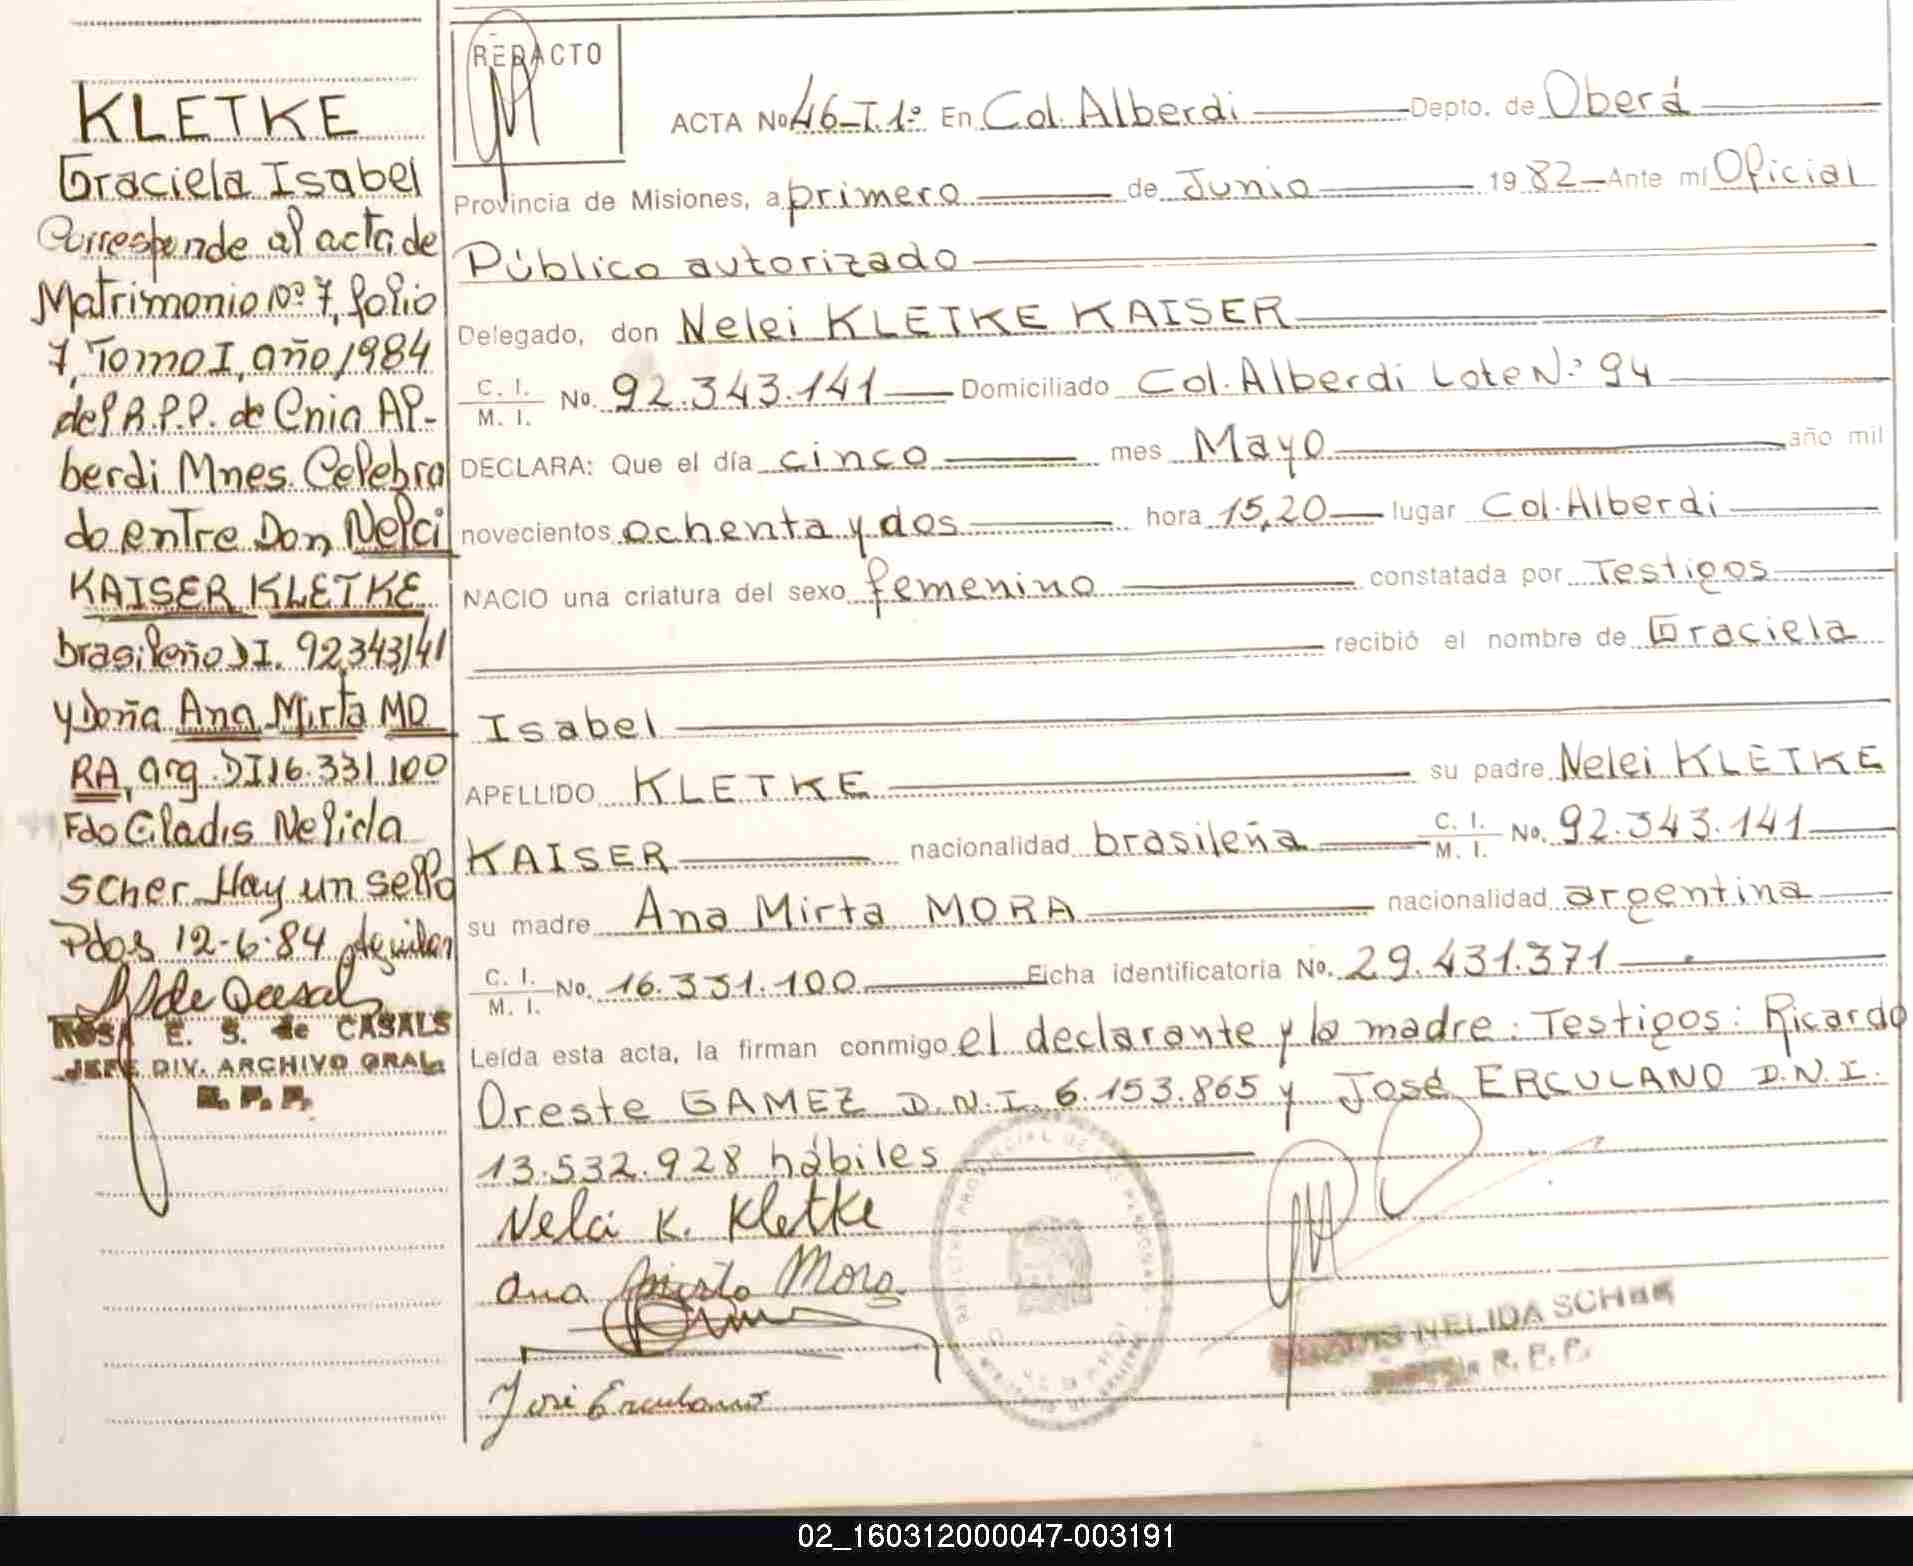 KLETKE
Graciela Isabel
Corresponde al acta de
Matrimonio nº 7, folio
7, Tomo I, año 1984
del R.P.P. de Cnia Al-
berdi Mnes. Celebra
do entre Don Nelci
KAISER KLETKE
brasileño DI. 92343141
y Doña Ana Mirta MO
RA, arg. DI 16.331.100
Fdo Gladis Nelida
Scher Hay un sello
Pdas 12-6-84
ROSA E. S. de CASALS
JEFE DIV. ARCHIVO GRAL.
R. P. P.
REDACTO
ACTA No 46-T.1º En Col. Alberdi Depto. de Oberá
Provincia de Misiones, a primero de Junio 1982 Ante mí Oficial
Público autorizado
Delegado, don Nelci KLETKE KAISER
C. I.
M. I. No. 92.343.141 Domiciliado Col. Alberdi Lote Nº 94
DECLARA: Que el día cinco mes Mayo año mil
novecientos ochenta y dos hora 15,20 lugar Col. Alberdi
NACIO una criatura del sexo femenino constatada por Testigos
recibió el nombre de Graciela
Isabel
APELLIDO KLETKE su padre Nelci KLETKE
KAISER nacionalidad brasileña C. I. M. I. No. 92.343.141
su madre Ana Mirta MORA nacionalidad argentina
C. I. M. I. No. 16.331.100 Ficha identificatoria No. 29.431.371
Leída esta acta, la firman conmigo el declarante y la madre: Testigos: Ricardo
Oreste GAMEZ D.N.I. 6.153.865 y José ERCULANO D.N.I.
13.532.928 hábiles
Nelci K. Kletke
Ana Mirta Mora
José Erculano
NELIDA SCHER
R. P. P.
02_160312000047-003191